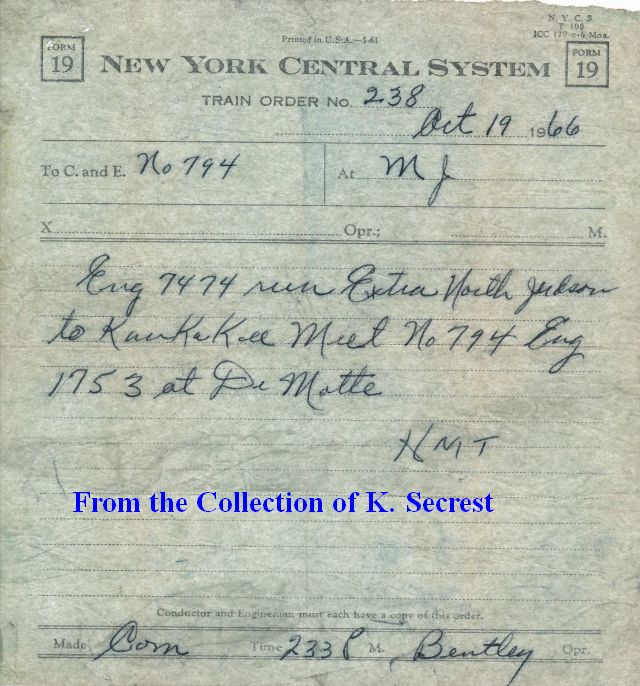 N. Y. C. S.
T 100
ICC 170-c-6 Mos.
Printed in U.S.A.—5-61
FORM 19
NEW YORK CENTRAL SYSTEM
FORM 19
TRAIN ORDER No. 238
Oct 19 1966
To C. and E. No 794 At M J
X Opr.; M.
Eng 7474 run Extra North Judson
to KanKaKee Meet No 794 Eng
1753 at De Motte
HMT
From the Collection of K. Secrest
Conductor and Engineman must each have a copy of this order.
Made Com Time 233 P M. Bentley Opr.